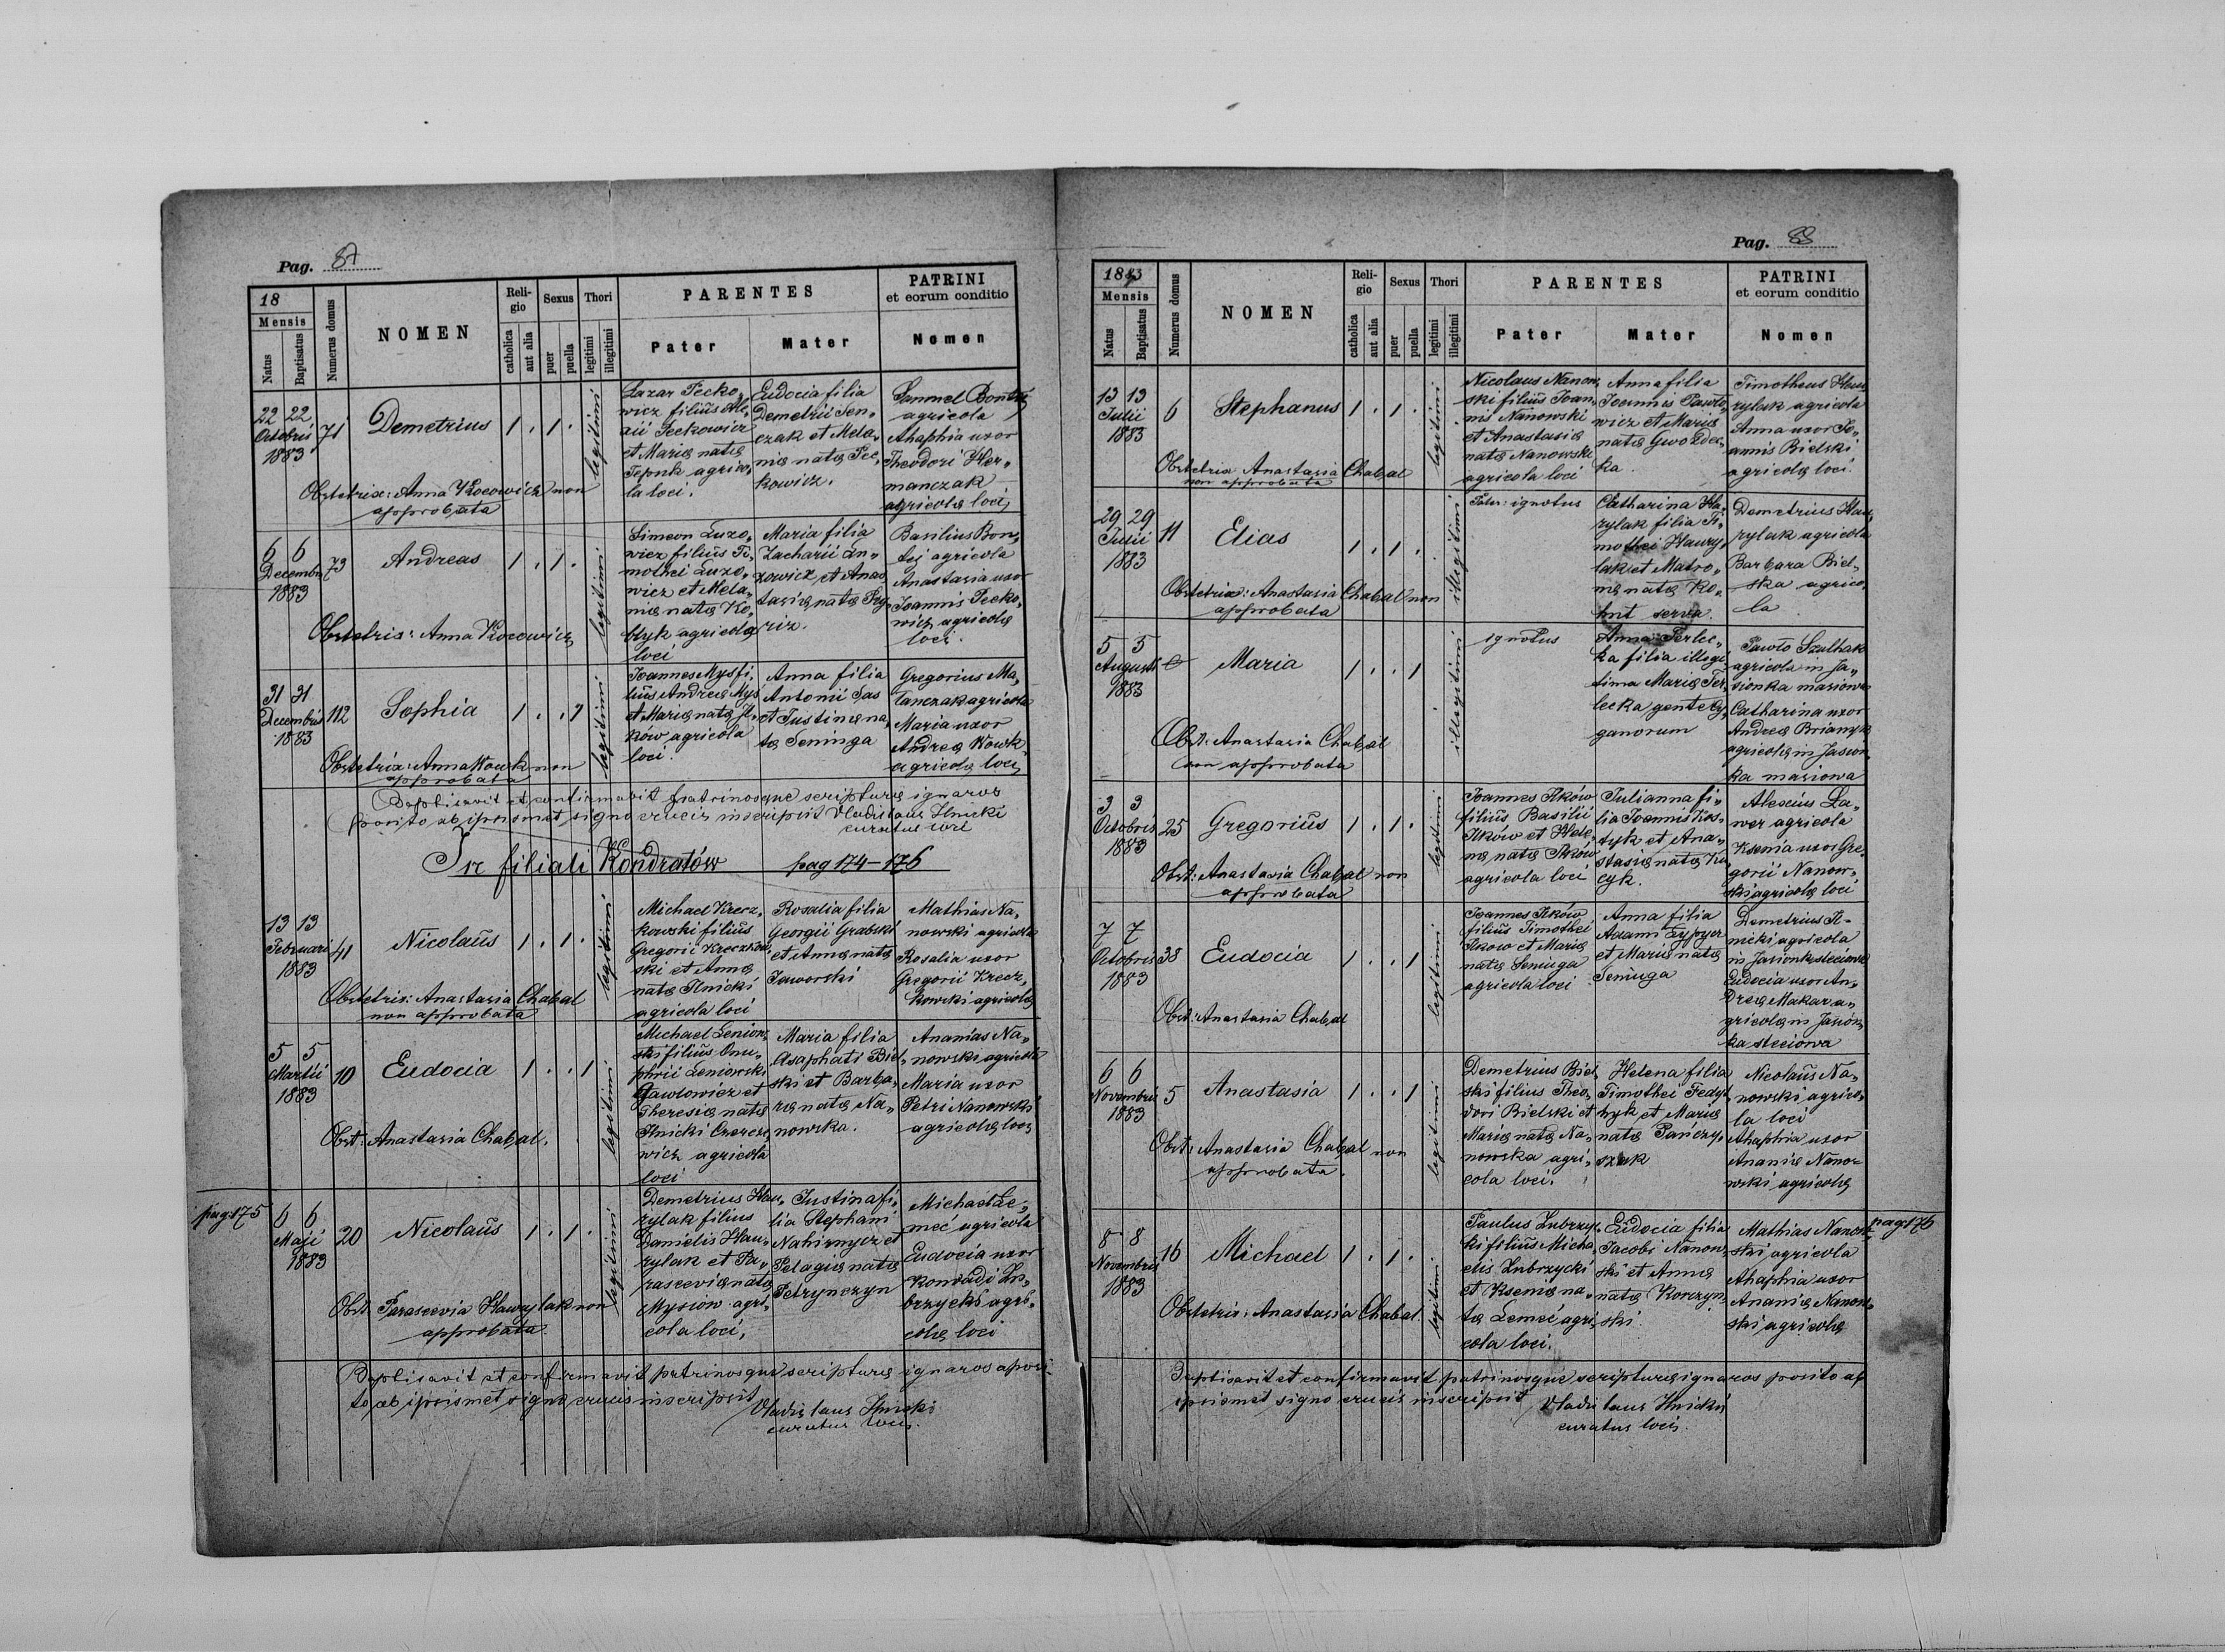 Pag. 87
18
Mensis
Natus
Baptisatus
Numerus domus
NOMEN
Religio
catholica
aut alia
Sexus
puer
puella
Thori
legitimi
illegitimi
PARENTES
Pater
Mater
PATRINI
et eorum conditio
Nomen
22 22
Octobris
1883
71
Demetrius
1 . 1 .
legitimi
Lazar Pecko„
wicz filius Ale„
xii Peckowicz
et Mariæ natæ
agrico„
la loci.
Eudocia filia
Demetrii Sen„
czak et Mela„
niæ natæ Pec„
kowicz.
Samuel
agricola
Ahaphia uxor
Theodori Her„
manczak
agricolæ loci
Obstetrix: Anna Kocowicz non
approbata
6 6
Decembris
1883
73
Andreas
1 . 1 .
legitimi
Simeon Luzo„
wicz filius Ti„
mothei Luzo„
wicz et Mela„
niæ natæ Ko„
blyk agricola
loci
Maria filia
Zacharii
et Anas„
tasiæ natæ
Basilius Bon„
agricola
Anastasia uxor
Joannis Pecko„
wicz agricolæ
loci.
Obstetrix: Anna Kocowicz
31 31
Decembris
1883
112
Sophia
1 . . 1
legitimi
Joannes Mys fi„
lius Andreæ Mys
et Mariæ natæ Il„
ków agricola
loci.
Anna filia
Antonii Sas
et Justinæ na„
tæ Seninga
Gregorius Ma„
lanczak agricola
Maria uxor
Andreæ Wowk
agricolæ loci
Obstetrix: Anna Wowk non
approbata
Baptisavit et confirmavit patrinosque scripturæ ignaros
posito ab ipsismet signo crucis inscripsit Vladislaus Ilnicki
curatus loci
In filiali Kondratów pag 174-176
13 13
Februari
1883
41
Nicolaus
1 . 1 .
legitimi
Michael Krecz„
kowski filius
Gregorii Kreczkow
ski et Annæ
natæ Ilnicki
agricola loci
Rosalia filia
Georgii Grabski
et Annæ natæ
Jaworski
Mathias Na„
nowski agricola
Rosalia uxor
Gregorii Krecz„
kowski agricolæ
Obstetrix: Anastasia Chabal
non approbata
5 5
Martii
1883
10
Eudocia
1 . . 1
legitimi
Michael Leniow„
ski filius Onu„
phrii Leniowski
Gawłowicz et
Theresiæ natæ
Ilnicki
wicz agricola
loci
Maria filia
Asaphati Biel„
ski et Barba„
ræ natæ Na„
nowska.
Ananias Na„
nowski agricola
Maria uxor
Petri Nanowski
agricolæ loci
Obst: Anastasia Chabal.
pag. 175
6 6
Maji
1883
20
Nicolaus
1 . 1 .
legitimi
Demetrius Haw„
rylak filius
Danielis Haw„
rylak et Pa„
rasceviæ natæ
Mysiow agri„
cola loci,
Justina fi„
lia Stephani
Nahirnycz et
Pelagiæ natæ
Petrynczyn
Michael Le„
meć agricola
Eudocia uxor
Konradi Zu„
brzycki agri„
colæ loci
Obst: Parascevia Hawrylak non
approbata.
Baptisavit et confirmavit patrinosque scripturæ ignaros aposi„
to ab ipsismet signo crucis inscripsit
Vladislaus Ilnicki
curatus loci.
Pag. 88
1883
Mensis
Natus
Baptisatus
Numerus domus
NOMEN
Religio
catholica
aut alia
Sexus
puer
puella
Thori
legitimi
illegitimi
PARENTES
Pater
Mater
PATRINI
et eorum conditio
Nomen
13 13
Julii
1883
6
Stephanus
1 . 1 .
legitimi
Nicolaus Nanow„
ski filius Joan„
nis Nanowski
et Anastasiæ
natæ Nanowski
agricola loci
Anna filia
Joannis Pawlo„
wicz et Mariæ
natæ Gwozdec„
ka.
Timotheus Haw„
rylak agricola
Anna uxor Jo„
annis Bielski
agricolæ loci.
Obstetrix Anastasia Chabal
non approbata
29 29
Julii
1883
11
Elias
1 . 1 .
illegitimi
Pater: ignotus
Catharina Ha„
rylak filia Ti„
mothei Hawry„
lak et Matro„
næ natæ Ko„
hut serva.
Demetrius Haw„
rylak agricola
Barbara Biel„
ska agrico„
la
Obstetrix: Anastasia Chabal non
approbata
5 5
Augusti
1883
Maria
1 . . 1
illegitimi
ignotus
Anna Terlec„
ka filia illegi„
tima Mariæ Ter„
lecka gente Cy„
ganorum
Pawlo Szulhak
agricola in Ja„
sionka masiowa
Catharina uxor
Andreæ Brianyk
agricolæ in Jasion„
ka masiowa
Obst: Anastasia Chabal
non approbata
3 3
Octobris
1883
25
Gregorius
1 . 1 .
legitimi
Joannes Ilków
filius Basilii
Ilków et Hele„
næ natæ Ilków
agricola loci
Julianna fi„
lia Joannis Kos„
tyk et Ana„
stasiæ natæ Ku„
cyk.
Alexius La„
wer agricola
Ksenia uxor Gre„
gorii Nanow„
ski agricolæ loci
Obst: Anastasia Chabal non
approbata
7 7
Octobris
1883
38
Eudocia
1 . . 1
legitimi
Joannes Ilków
filius Timothei
Ilkow et Mariæ
natæ Seniuga
agricola loci
Anna filia
Adami
et Mariæ natæ
Seniuga
Demetrius Il„
nicki agricola
in Jasionka steciowa
Eudocia uxor An„
dreæ Makar a„
gricolæ in Jasion„
ka steciowa
Obst: Anastasia Chabal
6 6
Novembris
1883
5
Anastasia
1 . . 1
legitimi
Demetrius Biel„
ski filius Theo„
dori Bielski et
Mariæ natæ Na„
nowska agri„
cola loci.
Helena filia
Timothei Fedyt„
nyk et Mariæ
natæ Pańczy„
szak
Nicolaus Na„
nowski agrico„
la loci
Ahaphia uxor
Ananiæ Nano„
wski agricolæ
Obst: Anastasia Chabal non
approbata.
8 8
Novembris
1883
16
Michael
1 . 1 .
legitimi
Paulus Zubrzyc„
ki filius Micha„
elis Zubrzycki
et Kseniæ na„
tæ Lemeć agri„
cola loci.
Eudocia filia
Jacobi Nanow„
ski et Annæ
natæ Korczyn„
ski.
Mathias Nanow„
ski agricola
Ahaphia uxor
Ananiæ Nanow„
ski agricolæ
pag 176
Obstetrix: Anastasia Chabal.
Baptisavit et confirmavit patrinosque scripturæ ignaros posito ab
ipsismet signo crucis inscripsit Vladislaus Ilnicki
curatus loci.